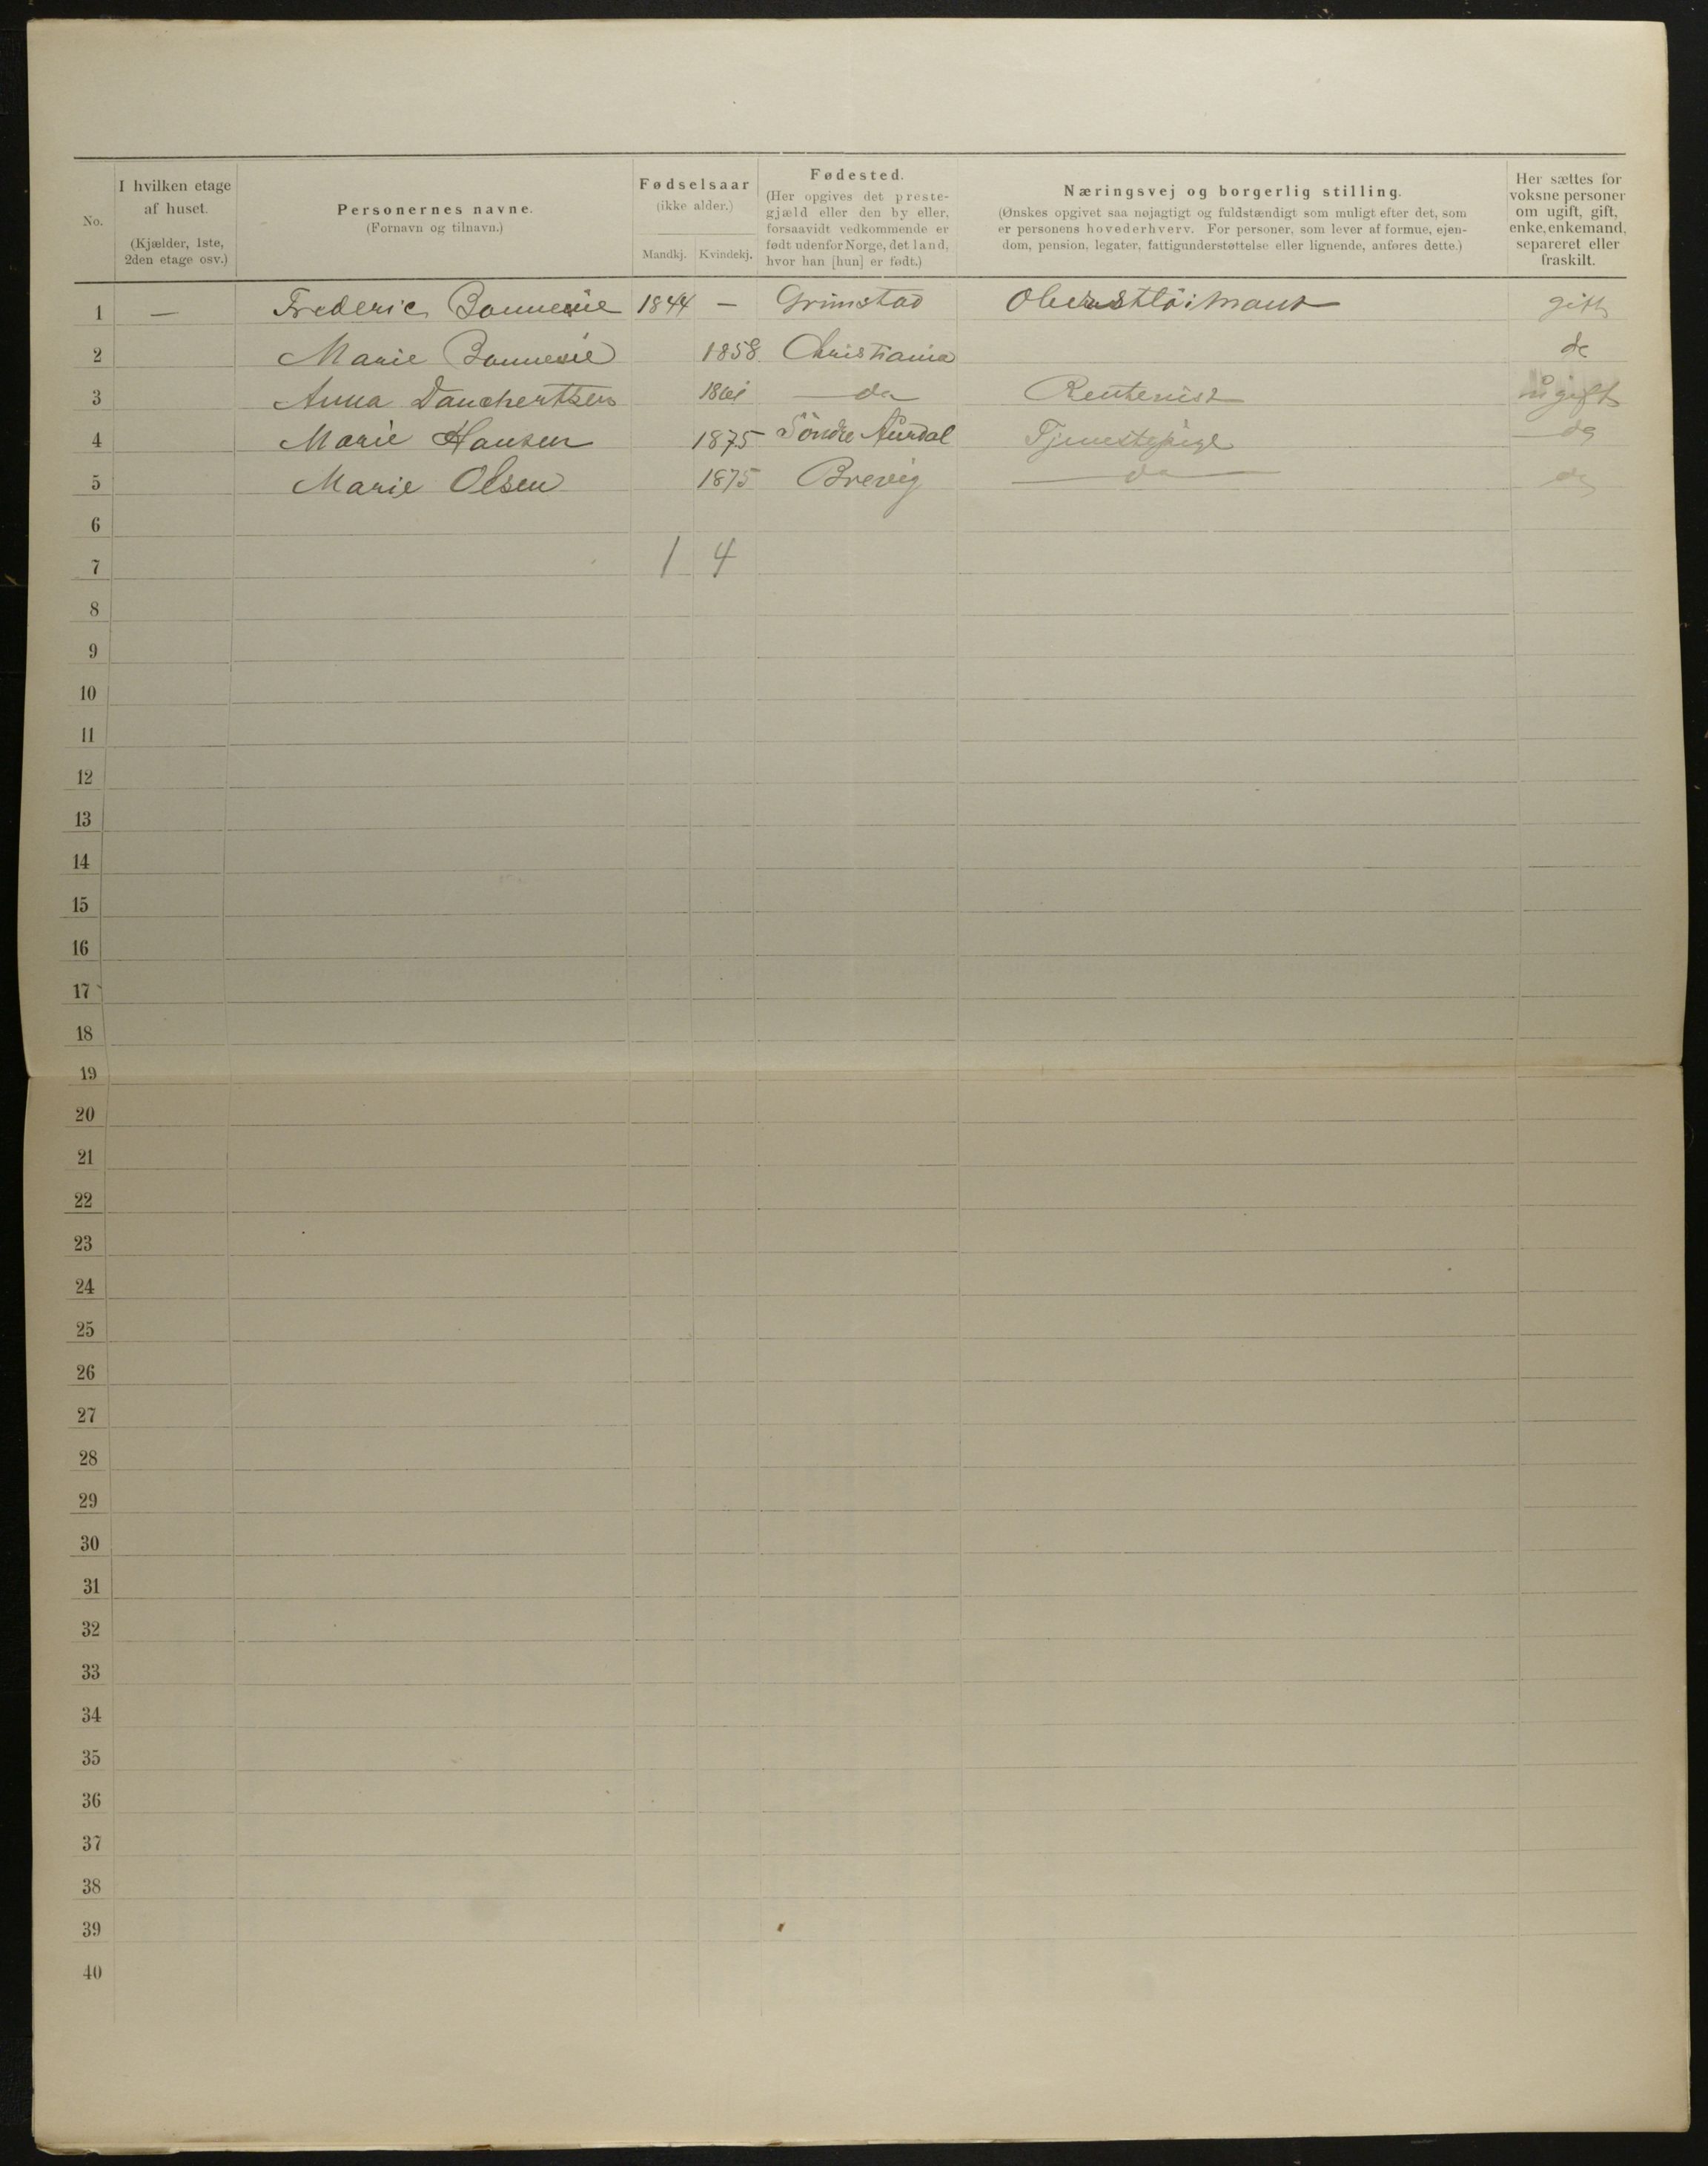 No.
I hvilken etage af huset.
(Kjælder, 1ste, 2den etage osv.)
Personernes navne.
(Fornavn og tilnavn.)
Fødselsaar
(ikke alder.)
Mandkj. Kvindekj.
Fødested.
(Her opgives det prestegjæld eller den by eller, forsaavidt vedkommende er født udenfor Norge, det land, hvor han [hun] er født.)
Næringsvej og borgerlig stilling.
(Ønskes opgivet saa nøjagtigt og fuldstændigt som muligt efter det, som er personens hovederhverv. For personer, som lever af formue, ejendom, pension, legater, fattigunderstøttelse eller lignende, anføres dette.)
Her sættes for voksne personer om ugift, gift, enke, enkemand, separeret eller fraskilt.
1 — Frederic 1844 — Grimstad gift
2 Marie 1858 Christiania do
3 Anna Danchertsen 1861 do Rentenist ugift
4 Marie Hansen 1875 Söndre Aurdal Tjenestepige do
5 Marie Olsen 1875 Brevig do do
6
7 1 4
8
9
10
11
12
13
14
15
16
17
18
19
20
21
22
23
24
25
26
27
28
29
30
31
32
33
34
35
36
37
38
39
40